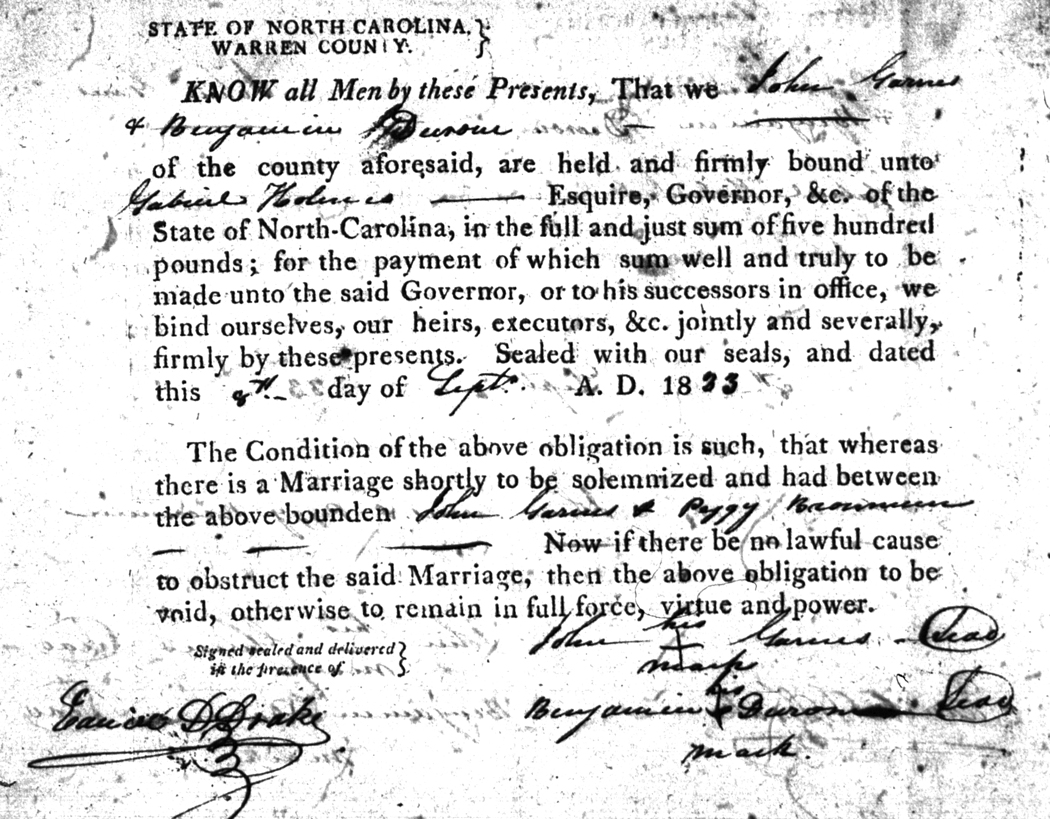 STATE OF NORTH CAROLINA, }
WARREN COUNTY.
KNOW all Men by these Presents, That we John Garnes
& Benjamin
of the county aforesaid, are held and firmly bound unto
Gabriel Holmes Esquire, Governor, &c. of the
State of North-Carolina, in the full and just sum of five hundred
pounds; for the payment of which sum well and truly to be
made unto the said Governor, or to his successors in office, we
bind ourselves, our heirs, executors, &c. jointly and severally,
firmly by these presents. Sealed with our seals, and dated
this day of Sept. A. D. 1823
The Condition of the above obligation is such, that whereas
there is a Marriage shortly to be solemnized and had between
the above bounden John Garnes & Peggy
Now if there be no lawful cause
to obstruct the said Marriage, then the above obligation to be
void, otherwise to remain in full force, virtue and power.
Signed sealed and delivered }
in the presence of
John his Garnes Seal
mark
Benjamin his Seal
mark.
Drake